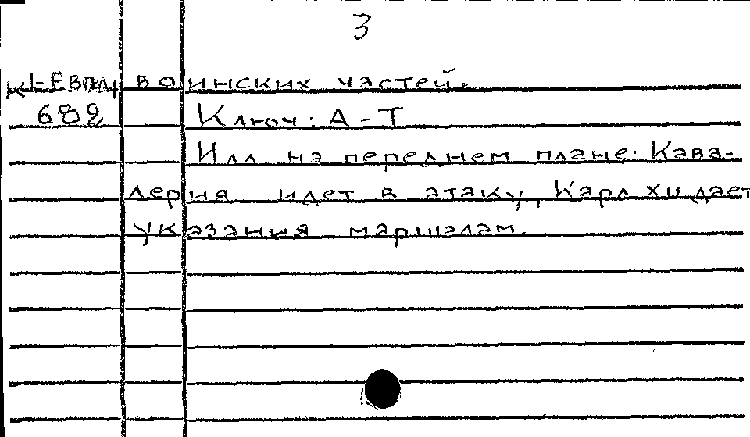 3
К1-Евпл воинских частей.
682 Ключ: А-Т
Илл на переднем плане. Кава-
лерия идет в атаку, Карл XII дает
указания маршалам.